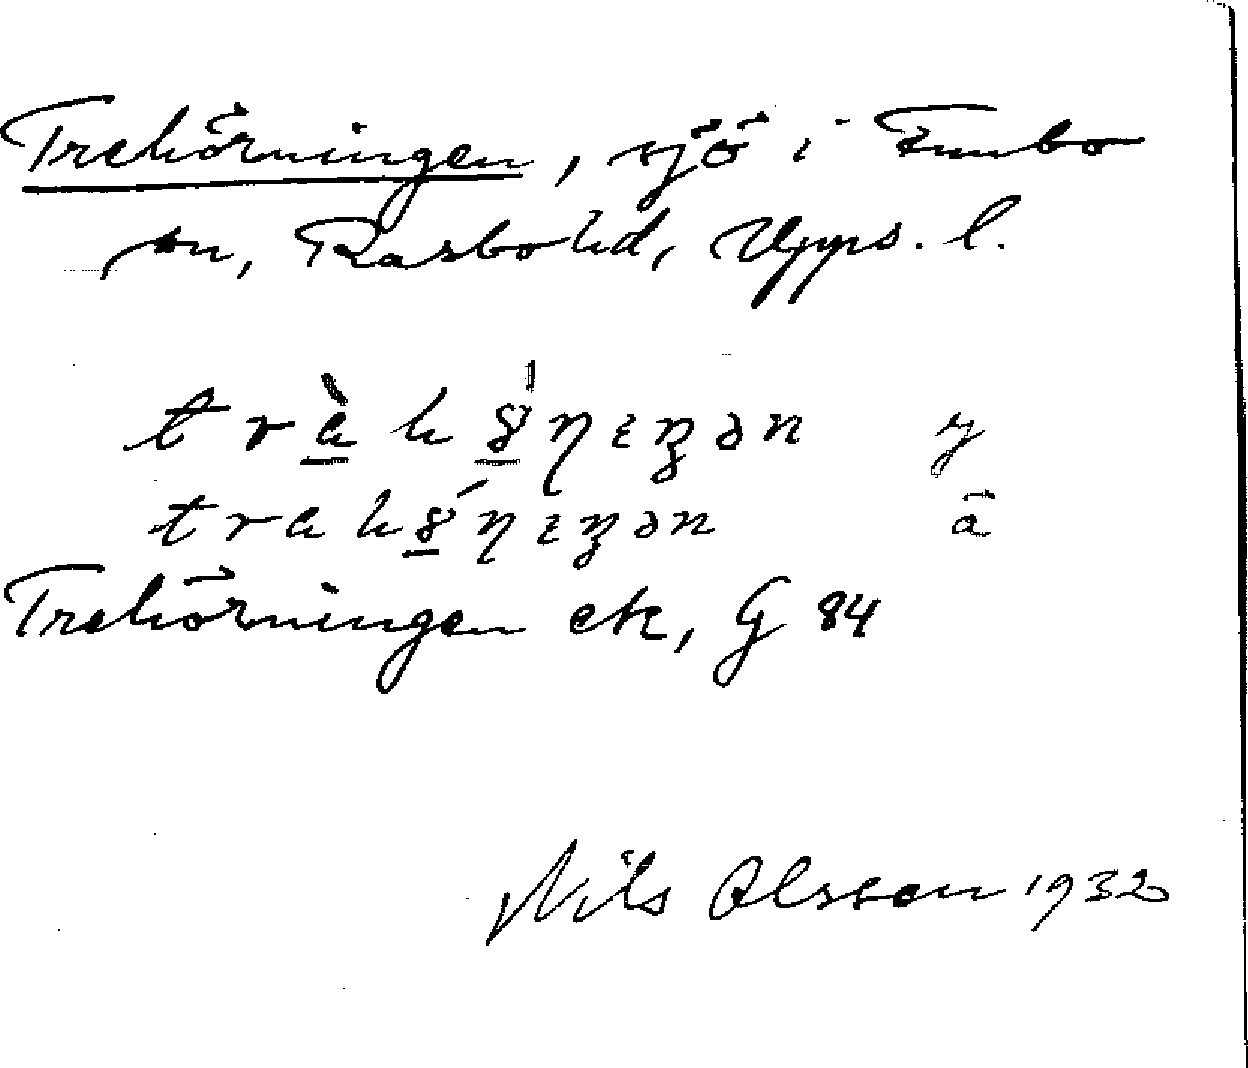 Trehörningen, sjö i Funbo
sn, Rasbo hd, Upps. l.
y
ä
Trehörningen ek, G 84
Nils Olsson 1932